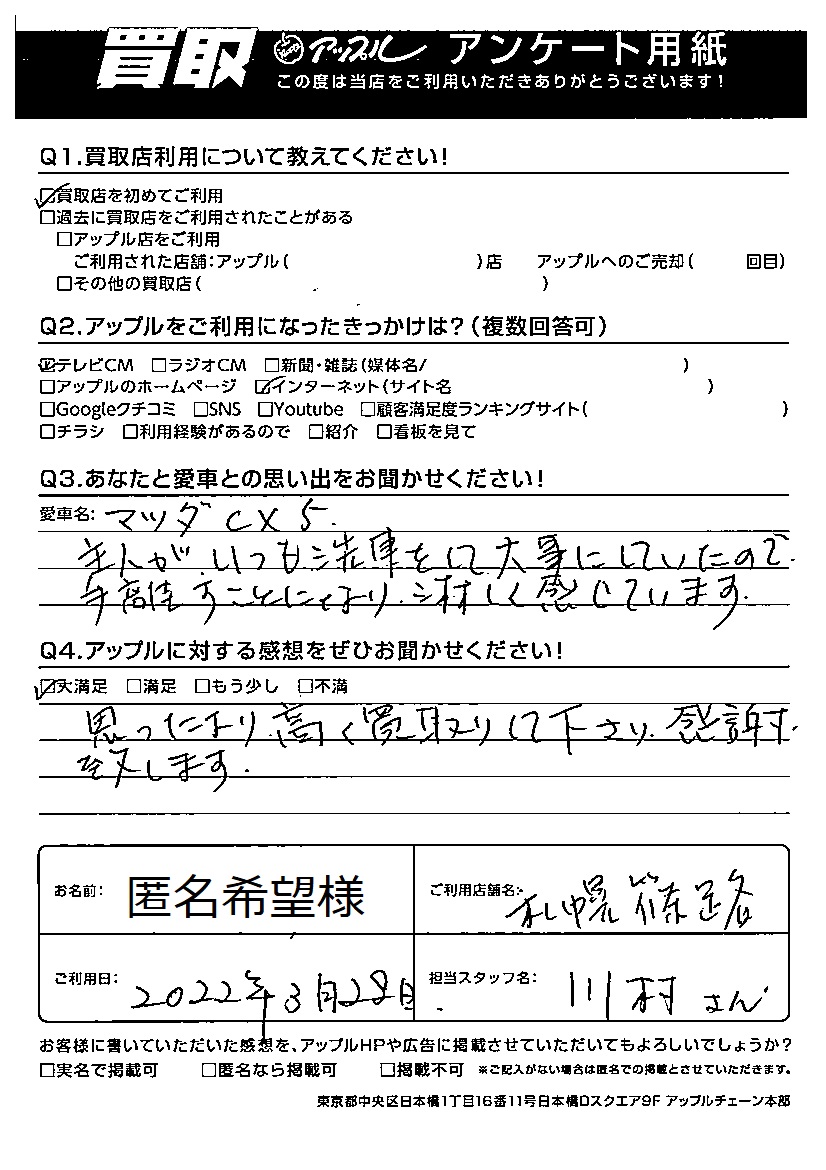 買取 アップル アンケート用紙
この度は当店をご利用いただきありがとうございます!
Q1.買取店利用について教えてください!
☑買取店を初めてご利用
□過去に買取店をご利用されたことがある
□アップル店をご利用
ご利用された店舗:アップル( )店 アップルへのご売却( 回目)
□その他の買取店( )
Q2.アップルをご利用になったきっかけは?(複数回答可)
☑テレビCM □ラジオCM □新聞・雑誌(媒体名/ )
□アップルのホームページ ☑インターネット(サイト名 )
□Googleクチコミ □SNS □Youtube □顧客満足度ランキングサイト( )
□チラシ □利用経験があるので □紹介 □看板を見て
Q3.あなたと愛車との思い出をお聞かせください!
愛車名: マツダ CX5.
主人が、いつも洗車をして大事にしていたので
手離すことになり、淋しく感じています。
Q4.アップルに対する感想をぜひお聞かせください!
☑大満足 □満足 □もう少し □不満
思ったより高く買取りして下さり、感謝
致します。
お名前: 匿名希望様 ご利用店舗名: 札幌篠路
ご利用日: 2022年3月28日 担当スタッフ名: 川村さん
お客様に書いていただいた感想を、アップルHPや広告に掲載させていただいてもよろしいでしょうか?
□実名で掲載可 □匿名なら掲載可 □掲載不可 ※ご記入がない場合は匿名での掲載とさせていただきます。
東京都中央区日本橋1丁目16番11号日本橋Dスクエア9F アップルチェーン本部